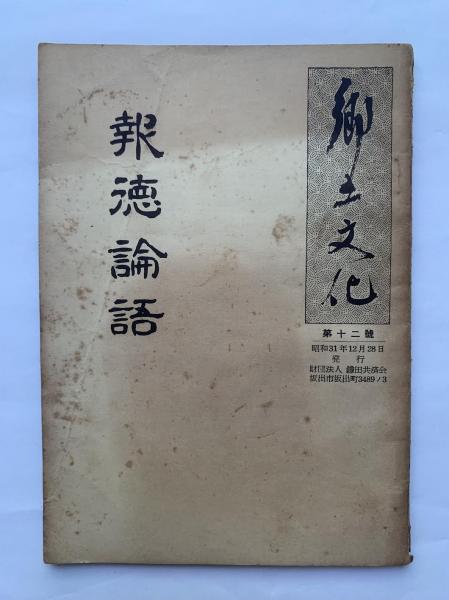 郷土文化
第十二號
昭和31年12月28日
発行
財団法人 鎌田共済会
坂出市坂出町3489ノ3
報徳論語